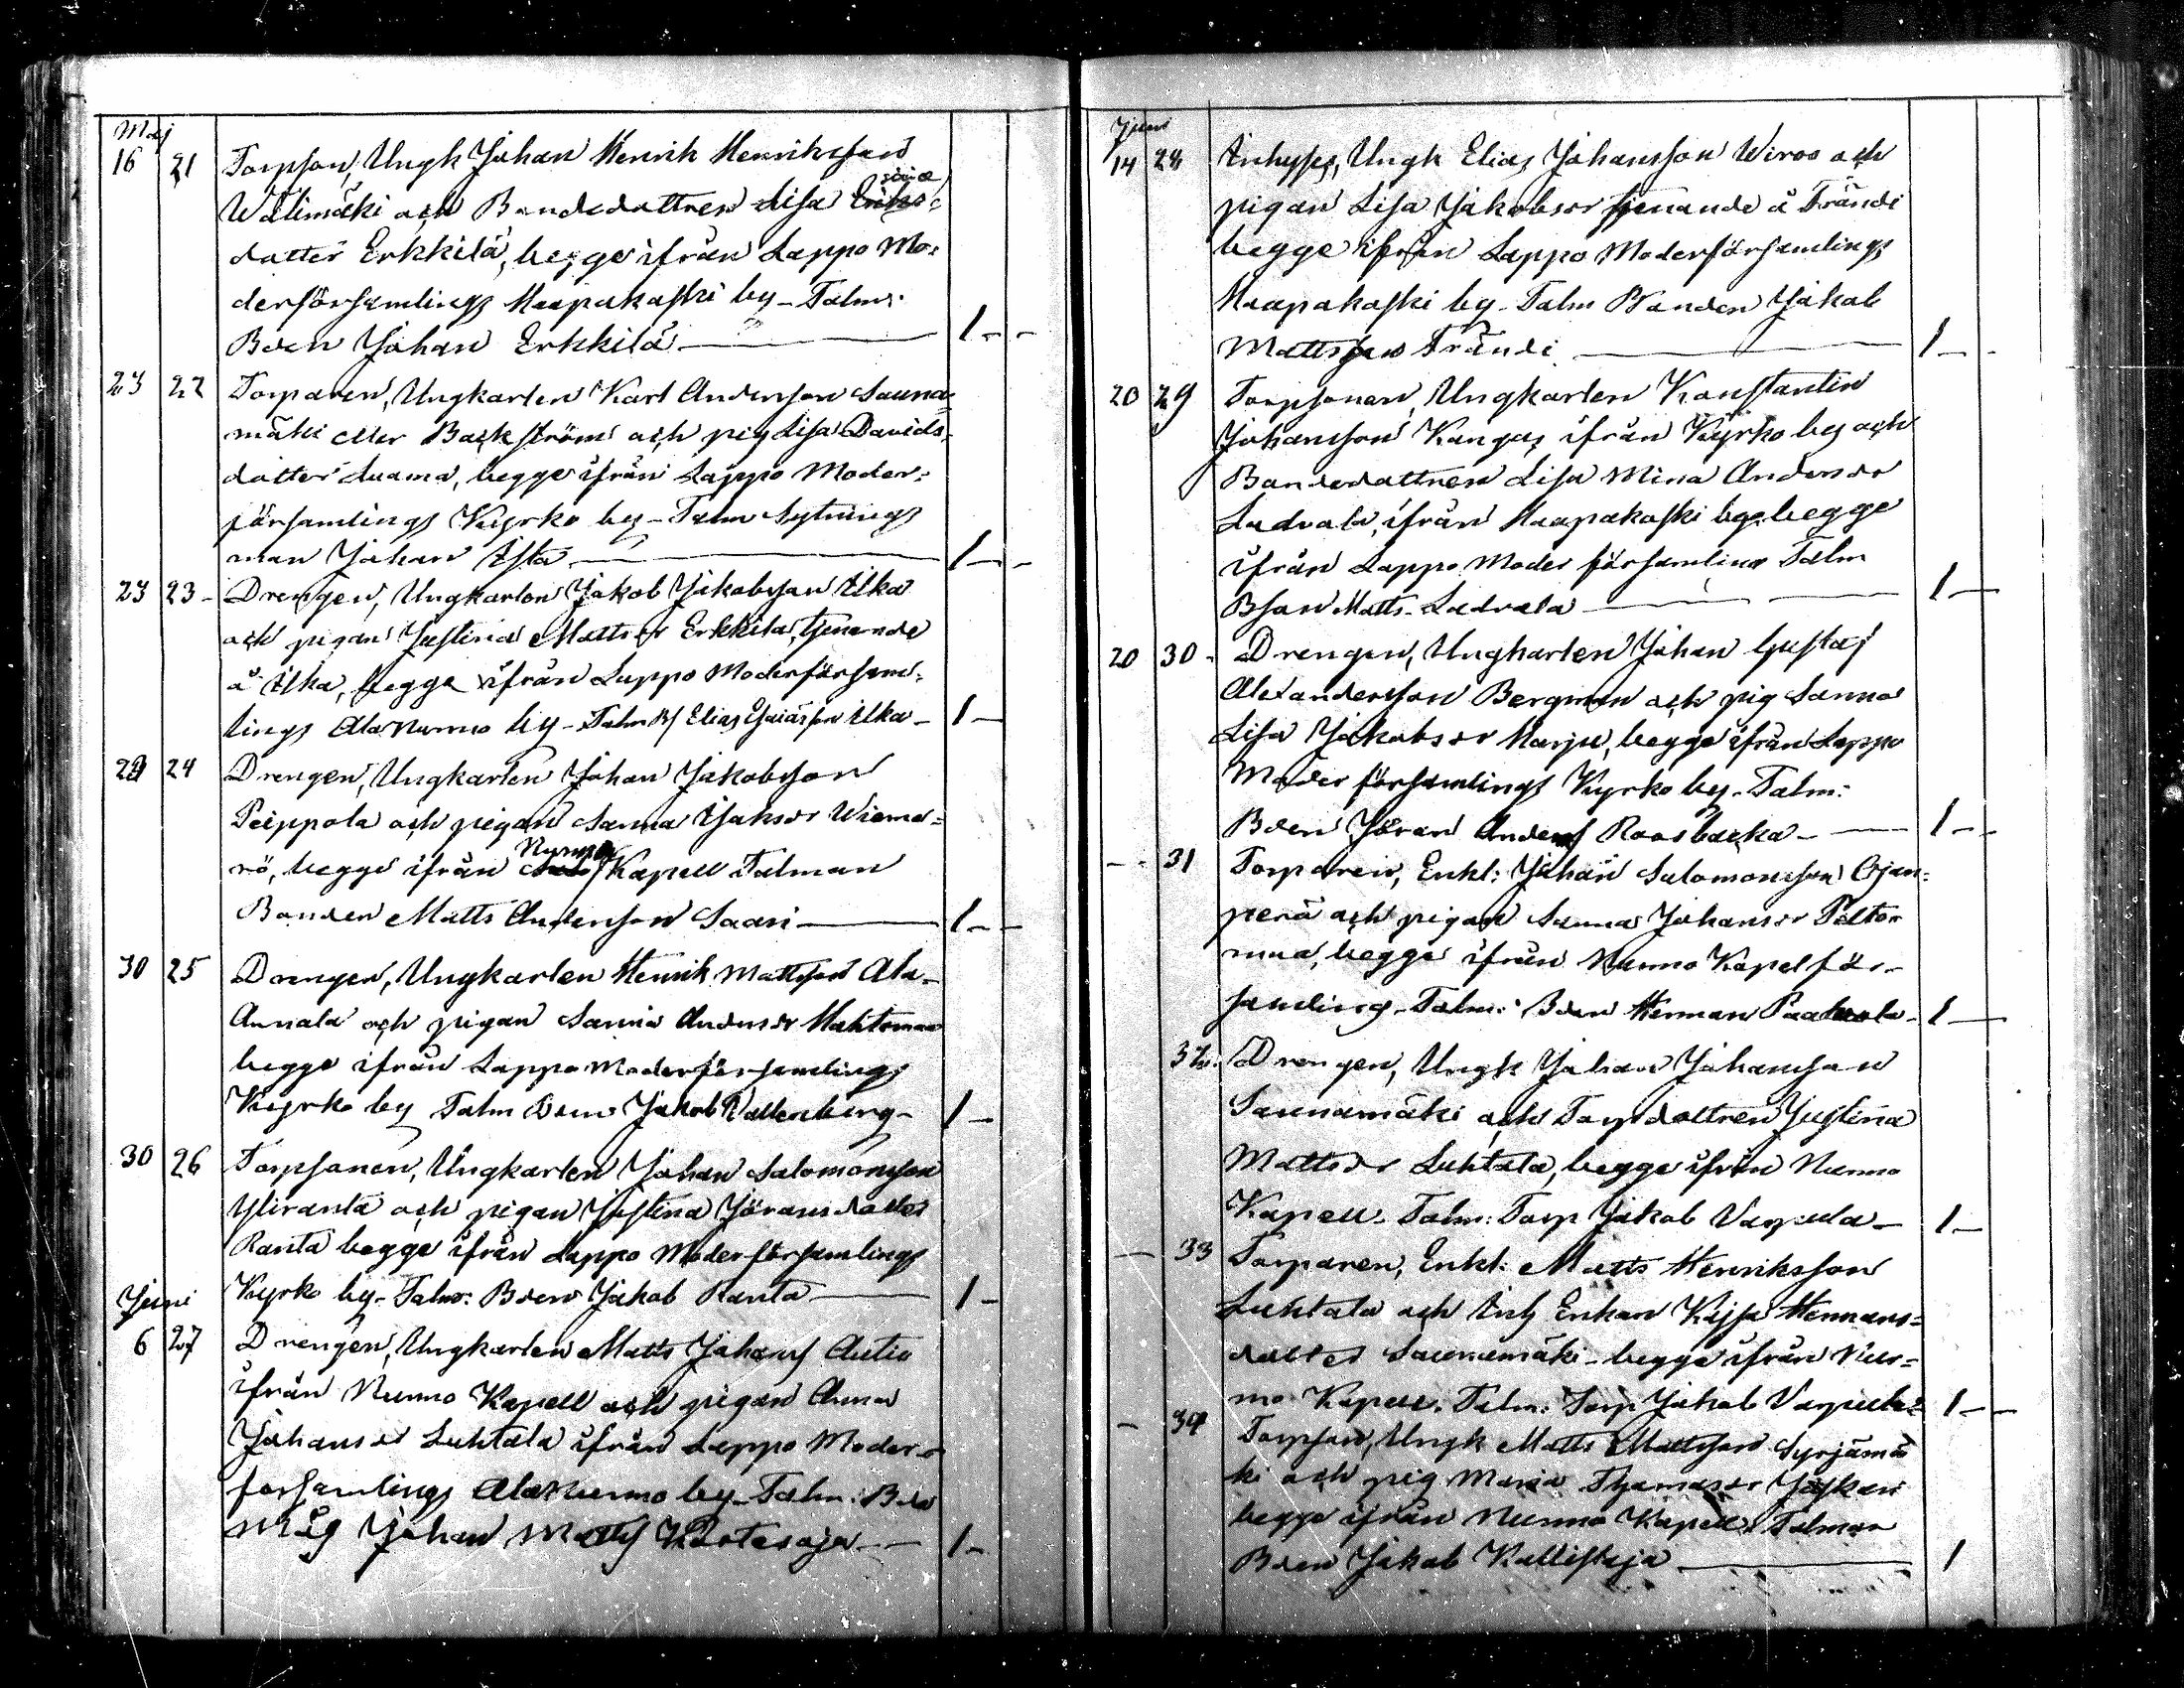 Maj
16 21 Torpson, Ungk Johan Henrik Henriksson
Wälimäki och Bondedottren Lisa Eriks-
dotter Erkkilä, begge ifrån Lappo Mo-
derförsamlings Haapakoski by - Talm:
Bden Johan Erkkilä 1
23 22 Torparen, Ungkarlen Karl Andersson Sauna-
mäki eller Backström och pig Lisa Davids-
dotter Luoma, begge ifrån Lappo Moder-
församlings Kyrko by - Talm Sytnings
man Johan 1
23 23 Drengen, Ungkarlen Jakob Jakobsson Ilka
och pigan Justina Mattsdr Erkkilä, tjenande
å Ilka, begge ifrån Lappo Moderförsam-
lings Ala Nurmo by - Talm Elias Esaiasson Ilka 1
24 Drengen, Ungkarlen Johan Jakobsson
Peippola och pigan Sanna Isaksdr Wiema-
rö, begge ifrån Nurmo Kapell Talman
Bonden Matts Andersson Saari 1
30 25 Drengen, Ungkarlen Henrik Mattsson Ala-
Annala och pigan Sanna Andersdr
begge ifrån Lappo Moderförsamlings
Kyrko by Talm Bden Jakob Wallenberg 1
30 26 Torpsonen, Ungkarlen Johan Salomonsson
Yliranta och pigan Justina Jöransdotter
Ranta begge ifrån Lappo Moderförsamlings
Kyrko by - Talm: Bden Jakob Ranta 1
Juni
6 27 Drengen, Ungkarlen Matts Johans Autio
ifrån Nurmo Kapell och pigan Anna
Johansdr Luhtala ifrån Lappo Moder-
församlings Ala Nurmo by - Talm: Bde
Måg Johan Matts 1
Juni
14 28 Inhyses, Ungk Elias Johansson Wiroo och
pigan Lisa Jakobsdr tjenande å Frändi
begge ifrån Lappo Moderförsamlings
Haapakoski by - Talm Bonden Jakob
Mattsson Frändi 1
20 29 Torpsonen, Ungkarlen Konstantin
Johansson Kangas ifrån Kyrko by och
Bondedottren Lisa Mina Andersdr
Ladvala, ifrån Haapakoski by begge
ifrån Lappo Moder församling Talm
Bson Matts Ladvala 1
20 30 Drengen, Ungkarlen Johan Gustaf
Alexandersson Bergman och pig Sanna
Lisa Jakobsdr Harju, begge ifrån Lappo
Moder församlings Kyrko by - Talm:
Bden Jöran Anders Roosbacka 1
31 Torparen, Enkl: Johan Salomonsson Ojan-
perä och pigan Sanna Johansdr
begge ifrån Nurmo Kapel för-
samling - Talm: Bden Herman 1
32 Drengen, Ungk Johan Johansson
Saunamäki och Torpdottren Justina
Mattsdr Luhtala, begge ifrån Nurmo
Kapell - Talm: Torp Jakob Varpula 1
33 Torparen, Enkl: Matts Henriksson
Luhtala och Inh Enkan Kajsa Hermans-
dotter Saunamäki - begge ifrån Nur-
mo Kapell: Talm: Torp Jakob Varpula 1
34 Torpson, Ungk Matts Mattsson Syrjämä
ki och pig Maria Thomasdr
begge ifrån Nurmo Kapell Talman
Bden Jakob Kallistaja 1